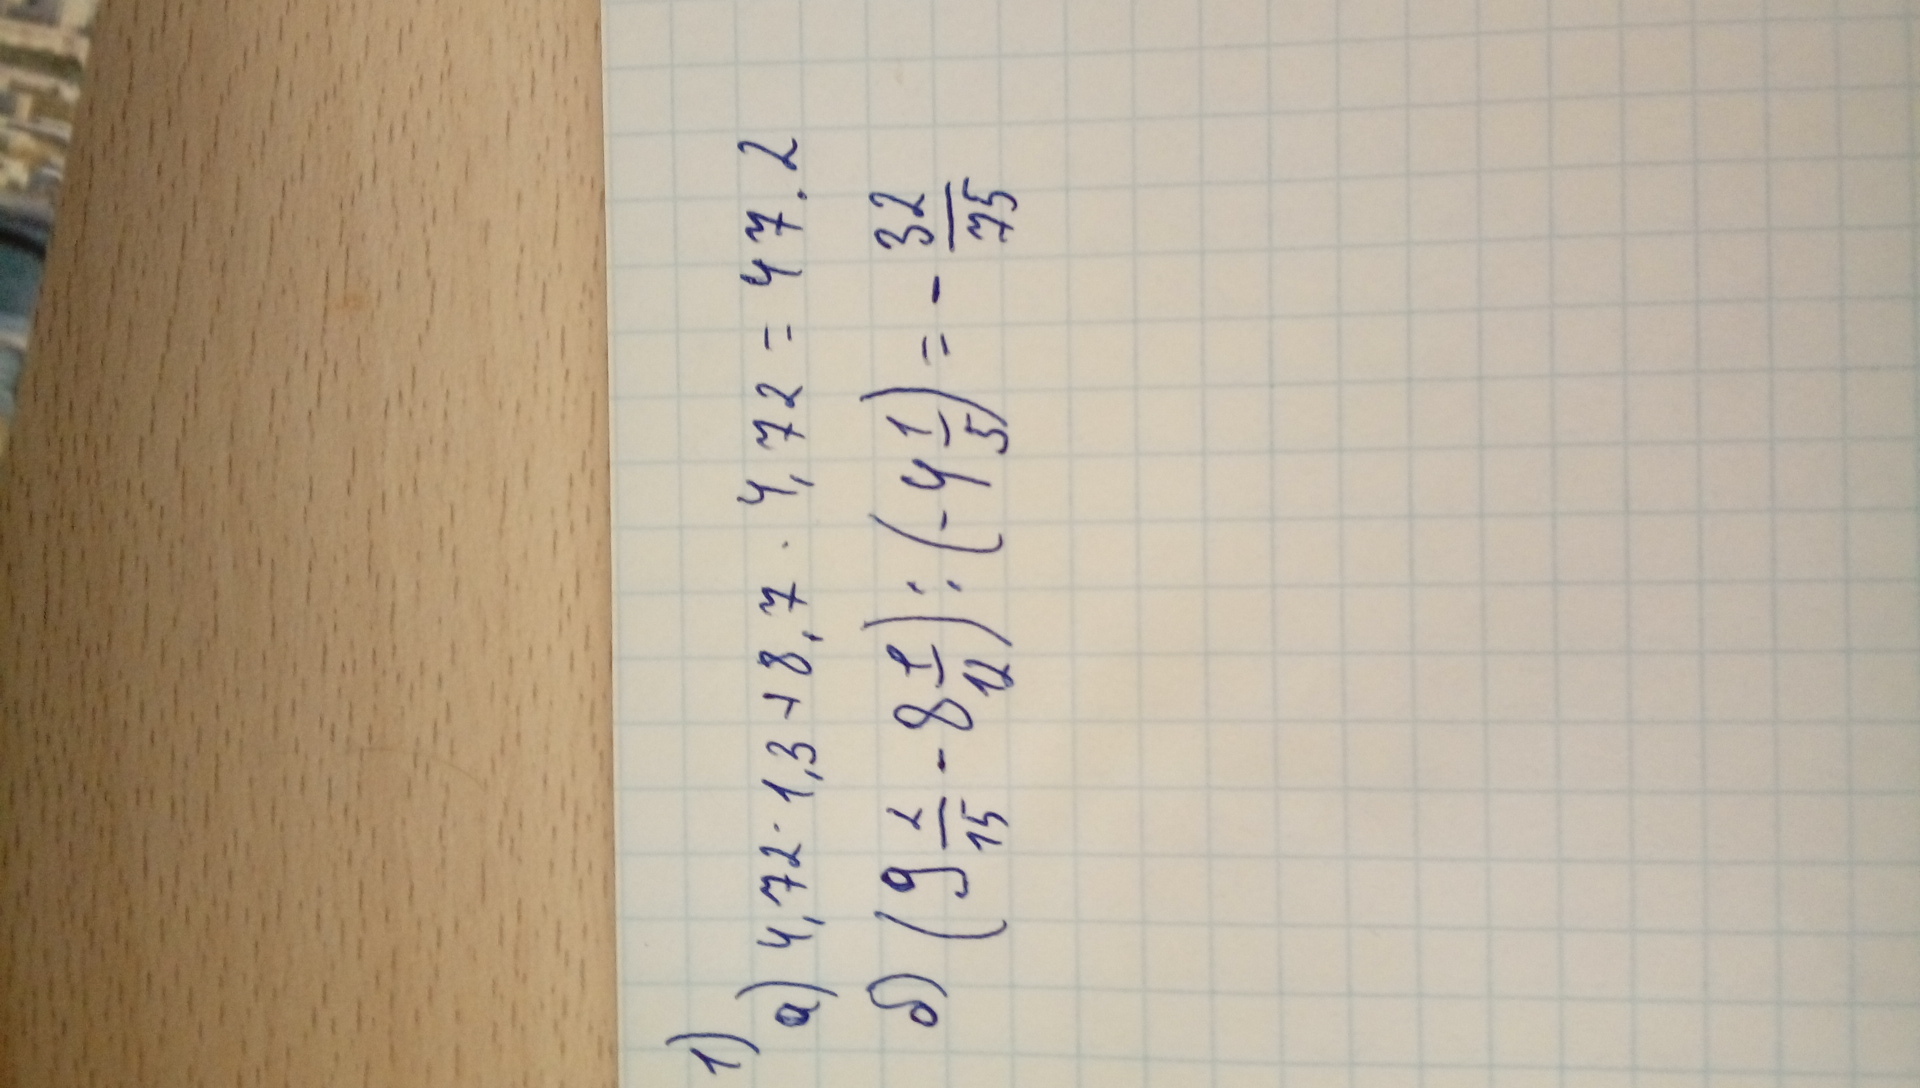 1)
а) 4,72 · 1,3 + 8,7 · 4,72 = 47.2
б) (9 2/15 - 8 1/12) : (-4 1/5) = - 32/75